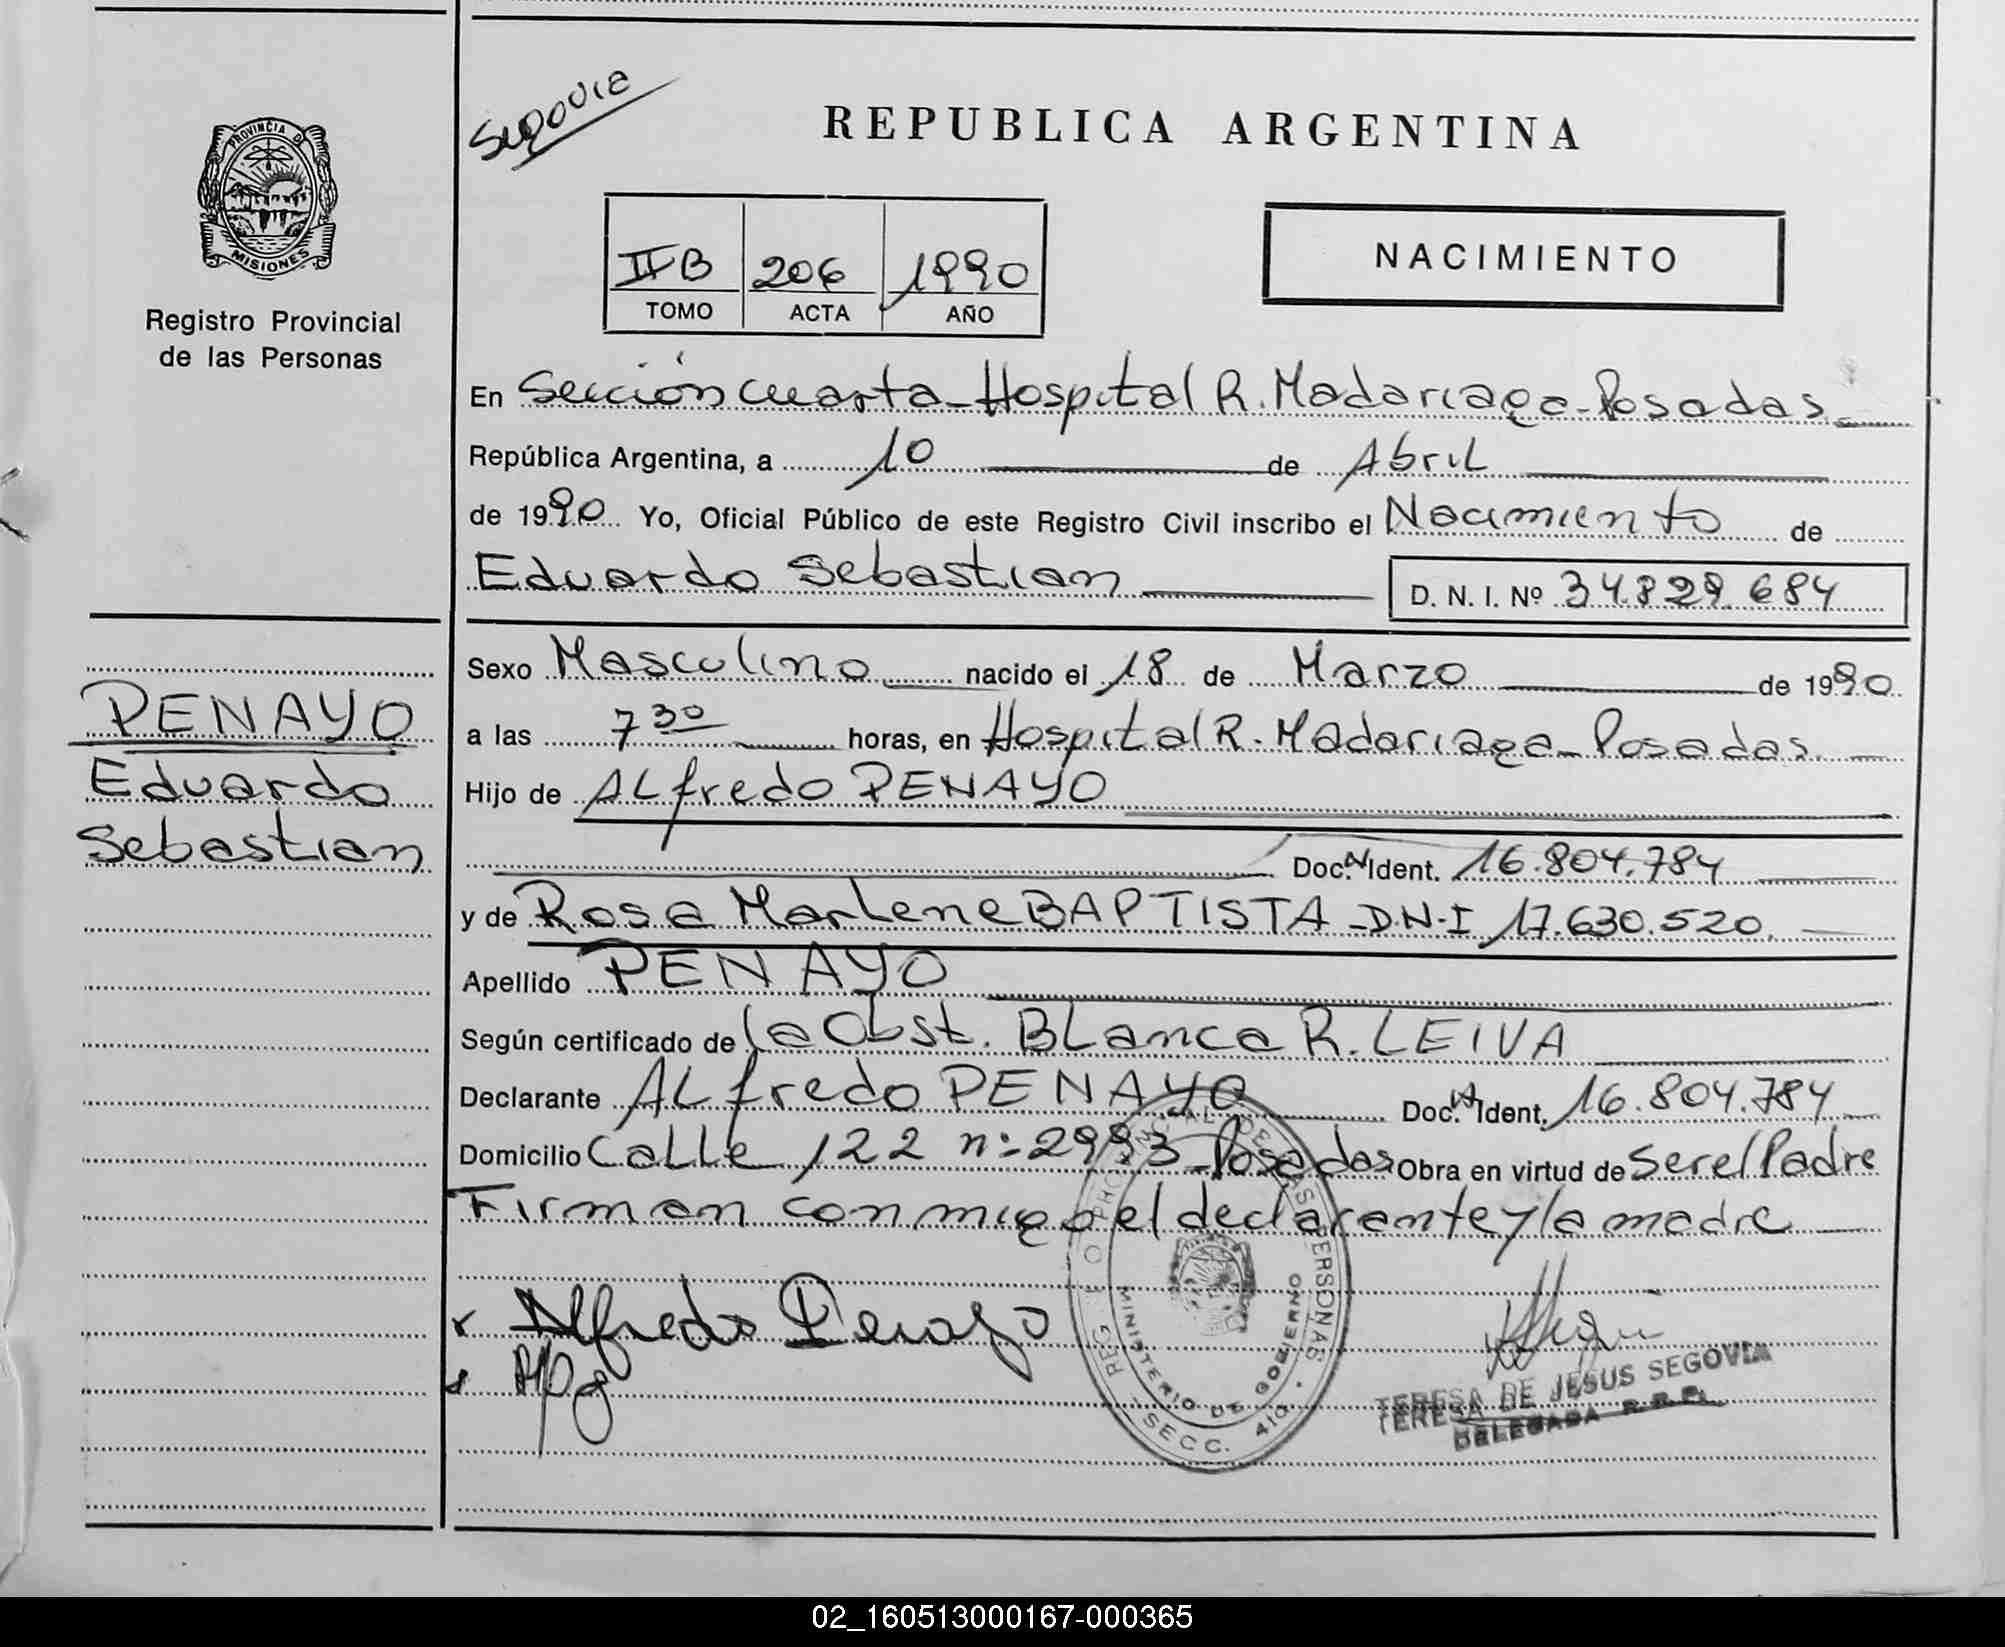 Segovia
REPUBLICA ARGENTINA
PROVINCIA D
MISIONES
Registro Provincial
de las Personas
II B 206 1990
TOMO ACTA AÑO
NACIMIENTO
En Sección Cuarta - Hospital R. Madariaga - Posadas
República Argentina, a 10 de Abril
de 1990 Yo, Oficial Público de este Registro Civil inscribo el Nacimiento de
Eduardo Sebastian D. N. I. Nº 34.829.684
Sexo Masculino nacido el 18 de Marzo de 1990
a las 7 30 horas, en Hospital R. Madariaga - Posadas.
Hijo de Alfredo PENAYO
Doc. N Ident. 16.804.784
y de Rosa Marlene BAPTISTA - D.N.I 17.630.520.
Apellido PENAYO
Según certificado de la Obst. Blanca R. LEIVA
Declarante Alfredo PENAYO Doc. N Ident. 16.804.784
Domicilio Calle 122 nº 2993 - Posadas Obra en virtud de Ser el Padre
Firman conmigo el declarante y la madre
PENAYO
Eduardo
Sebastian
x Alfredo Penayo
REG O PROVINCIAL DE LAS PERSONAS
MINISTERIO DE GOBIERNO
SECC. 4ta
TERESA DE JESUS SEGOVIA
DELEGADA R.R.P.
02_160513000167-000365